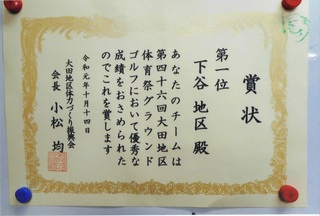 賞状
第一位
下谷地区殿
あなたのチームは
第四十六回大田地区
体育祭グラウンド
ゴルフにおいて優秀な
成績をおさめられた
のでこれを賞します
令和元年十月十四日
大田地区体力づくり振興会
会長 小松 均